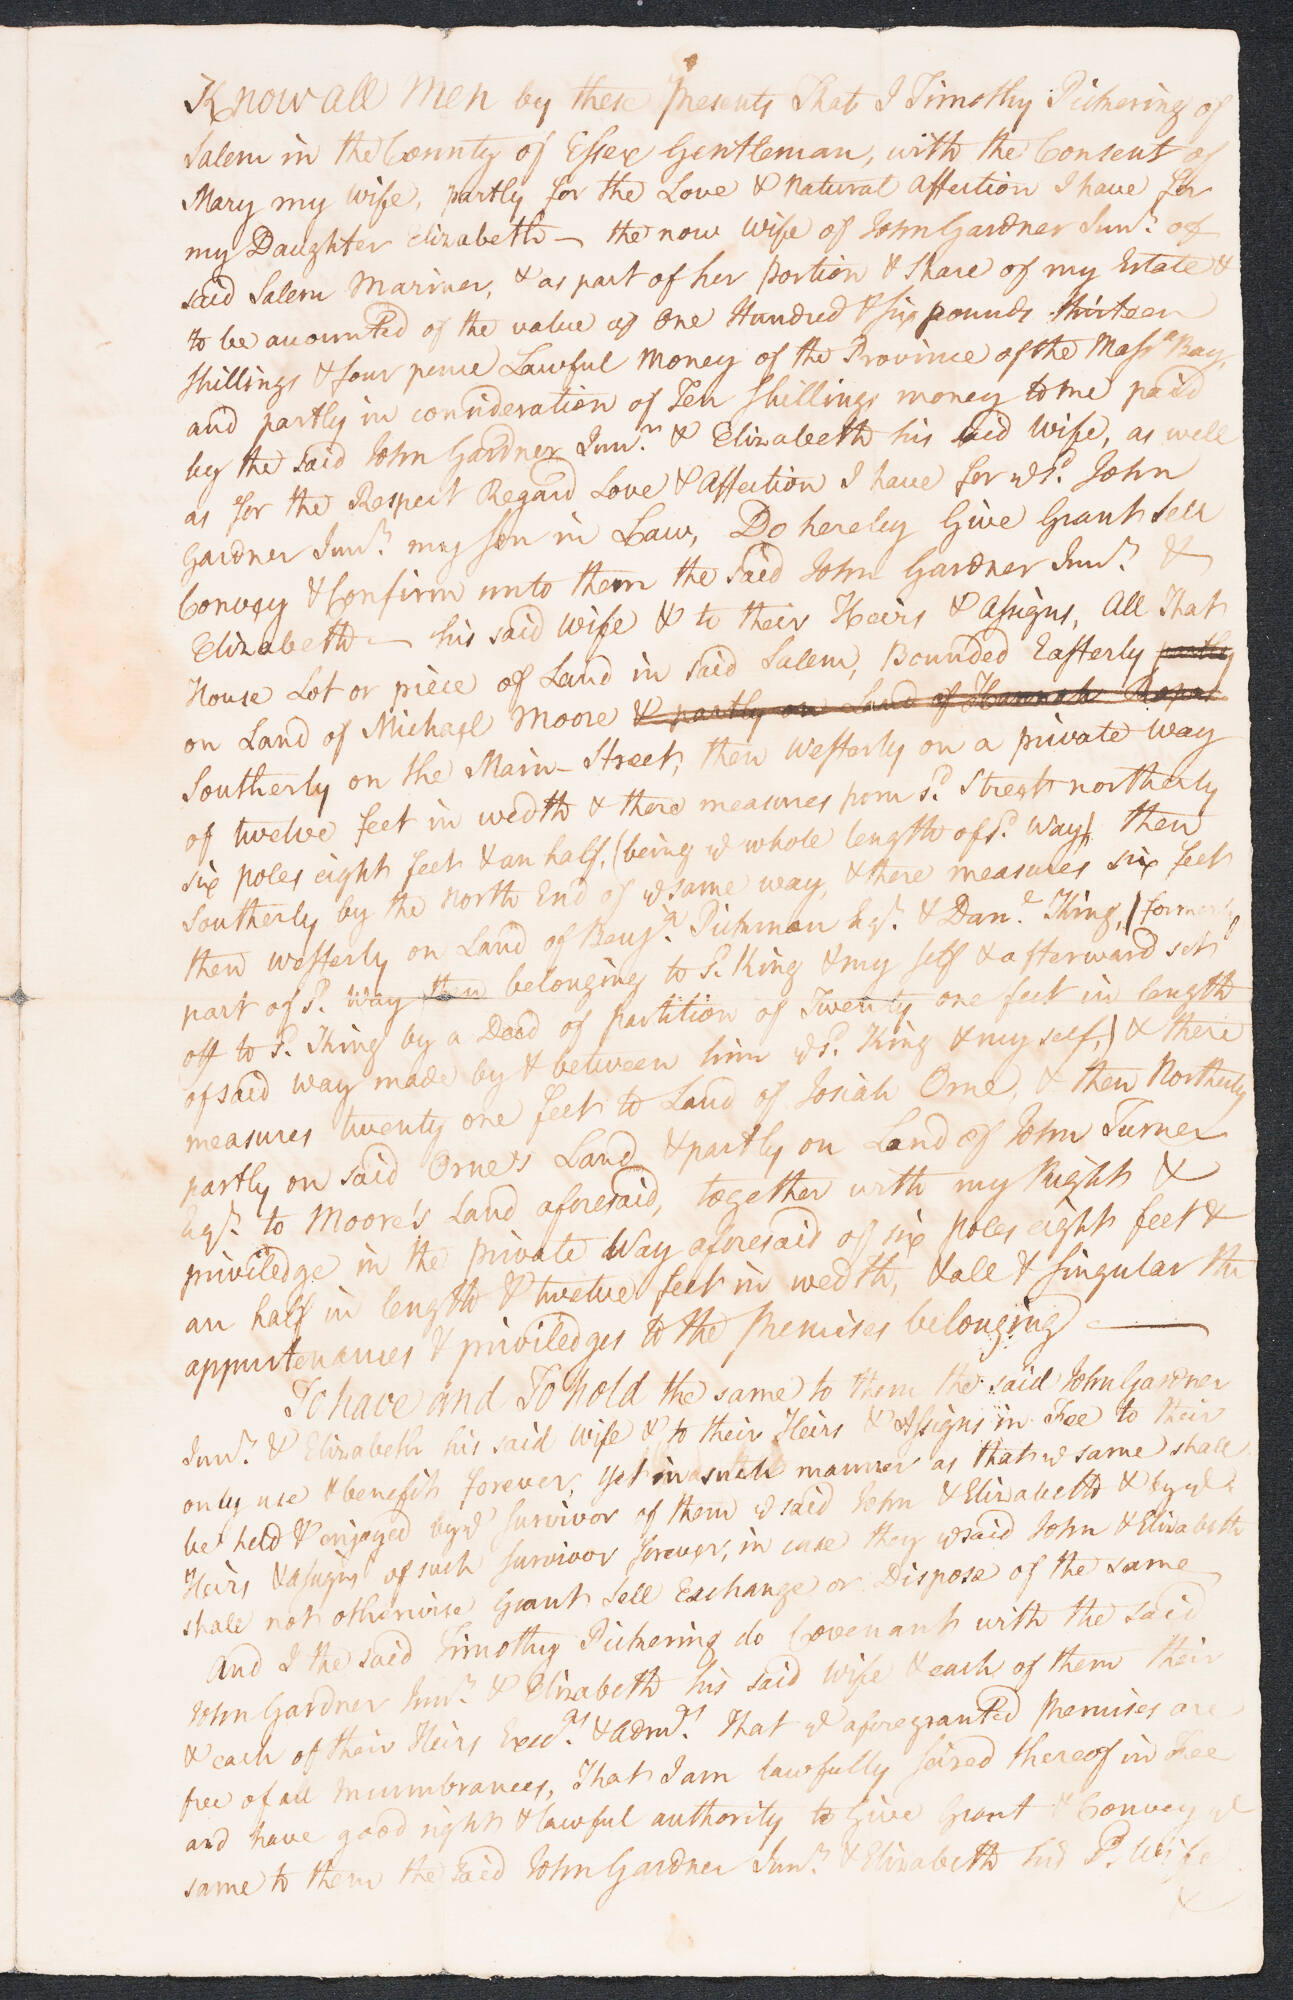 Know all Men by these Presents That I Timothy Pickering of
Salem in the County of Essex Gentleman, with the Consent of
Mary my wife, partly for the Love & Natural Affection I have for
my Daughter Elizabeth — the now Wife of John Gardner Junr. of
said Salem Mariner, & as part of her portion & share of my Estate &
to be accounted of the value of One Hundred & six pounds thirteen
shillings & four pence Lawful Money of the Province of the Massa. Bay,
and partly in consideration of Ten shillings money to me paid
by the said John Gardner Junr. & Elizabeth his said Wife, as well
as for the Respect Regard Love & Affection I have for ye sd. John
Gardner Junr. my son in Law, Do hereby Give Grant Sell
Convey & Confirm unto them the said John Gardner Junr. &
Elizabeth — his said Wife & to their Heirs & Assigns, All That
House Lot or piece of Land in said Salem, Bounded Easterly partly
on Land of Michael Moore & partly on Land of Hannah Ropes
Southerly on the Main-Street, then westerly on a private way
of twelve feet in wedth & there measures from sd. Street northerly
six poles eight feet & an half, (being ye whole length of sd. Way) then
Southerly by the north End of ye same way, & there measures six feet
then westerly on Land of Benja. Pickman Esqr. & Danl. King, (formerly
part of sd. Way then belonging to sd. King & my self & afterward set
off to sd. King by a Deed of partition of Twenty one feet in length
of said way made by & between him ye sd. King & my self,) & there
measures twenty one feet to Land of Josiah Orne, & then Northerly
partly on said Orne's Land & partly on Land of John Turner
Esqr. to Moore's Land aforesaid, together with my Right &
priviledge in the private Way aforesaid of six poles eight feet &
an half in length & twelve feet in wedth, & all & singular the
appurtenances & priviledges to the Premises belonging —
To have and To hold the same to them the said John Gardner
Junr. & Elizabeth his said Wife & to their Heirs & Assigns in Fee to their
only use & benefit forever, yet in such manner as that ye same shall
be held & enjoyed by ye Survivor of them ye said John & Elizabeth & by ye
Heirs & assigns of such Survivor forever, in case they ye said John & Elizabeth
shall not otherwise Grant Sell Exchange or Dispose of the same
And I the said Timothy Pickering do Covenant with the said
John Gardner Junr. & Elizabeth his said Wife & each of them their
& each of their Heirs Execrs. & Admrs. That ye aforegranted Premises are
free of all Incumbrances, That I am lawfully seized thereof in Fee
and have good right & lawful authority to Give Grant & Convey ye
same to them the said John Gardner Junr. & Elizabeth his sd. Wife
&